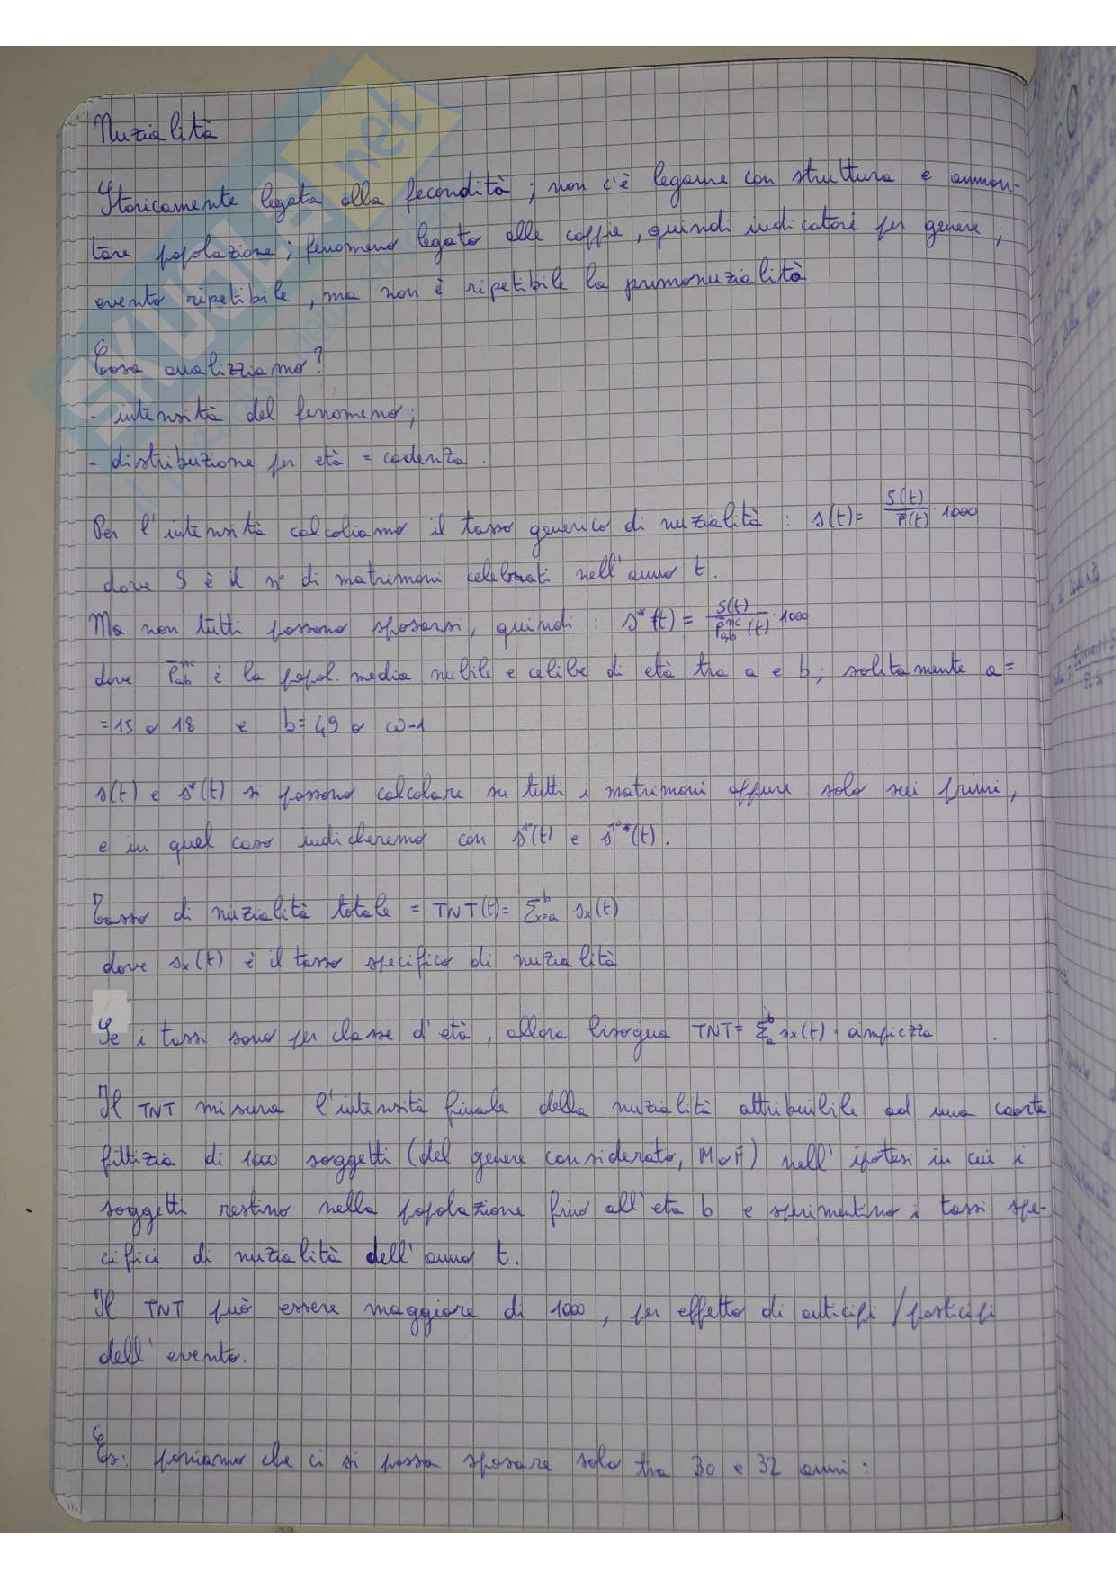 Nuzialità
Storicamente legata alla fecondità; non c'è legame con struttura e ammon-
tare popolazione; fenomeno legato alle coppie, quindi indicatori per genere,
evento ripetibile, ma non è ripetibile la primonuzialità
Cosa analizziamo?
- intensità del fenomeno;
- distribuzione per età = cadenza.
Per l'intensità calcoliamo il tasso generico di nuzialità: s(t) = S(t)/P̄(t) · 1000
dove S è il n° di matrimoni celebrati nell'anno t.
Ma non tutti possono sposarsi, quindi: s*(t) = S(t)/P̄ₐᵦⁿᶜ(t) · 1000
dove P̄ₐᵦⁿᶜ è la popol. media nubile e celibe di età tra a e b, solitamente a =
= 15 o 18 e b = 49 o ω-1
s(t) e s*(t) si possono calcolare su tutti i matrimoni oppure solo sui primi,
e in quel caso indicheremo con s°(t) e s°*(t).
Tasso di nuzialità totale = TNT(t) = Σᵇₓ₌ₐ sₓ(t)
dove sₓ(t) è il tasso specifico di nuzialità
Se i tassi sono per classe d'età, allora bisogna TNT = Σᵇₐ sₓ(t) · ampiezza
Il TNT misura l'intensità finale della nuzialità attribuibile ad una coorte
fittizia di 1000 soggetti (del genere considerato, M o F) nell'ipotesi in cui i
soggetti restino nella popolazione fino all'età b e sperimentino i tassi spe-
cifici di nuzialità dell'anno t.
Il TNT può essere maggiore di 1000, per effetto di anticipi/posticipi
dell'evento.
Es: poniamo che ci si possa sposare solo tra 30 e 32 anni: